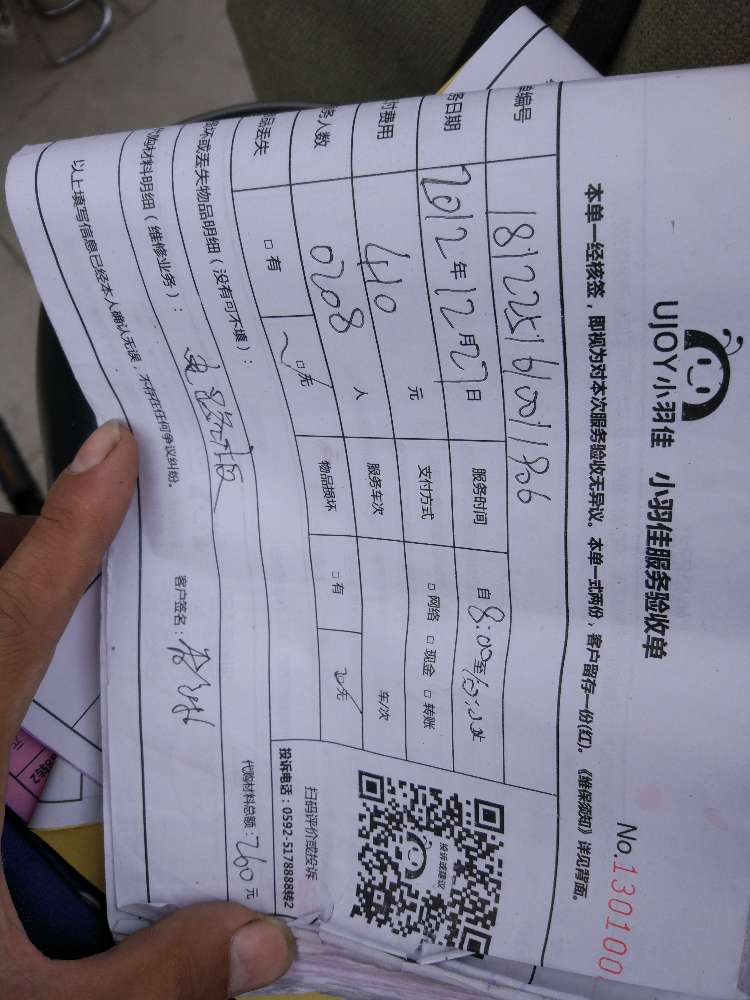 UJOY小羽佳 小羽佳服务验收单
No.130100
本单一经核签，即视为对本次服务验收无异议。本单一式两份，客户留存一份(红)。《维保须知》详见背面。
编号
务日期 2012年12月27日 服务时间 自8:00至
付费用 410 元 支付方式 □ 网络 □ 现金 □ 转账
务人数 0208 人 服务车次 车/次
品丢失 □ 有 □ 无 物品损坏 □ 有 □ 无
投诉或建议
扫码评价或投诉
投诉电话：0592-5178888转2
损坏或丢失物品明细（没有可不填）：
代购材料明细（维修业务）：
代购材料总额：260元
以上填写信息已经本人确认无误，不存在任何争议纠纷。
客户签名：